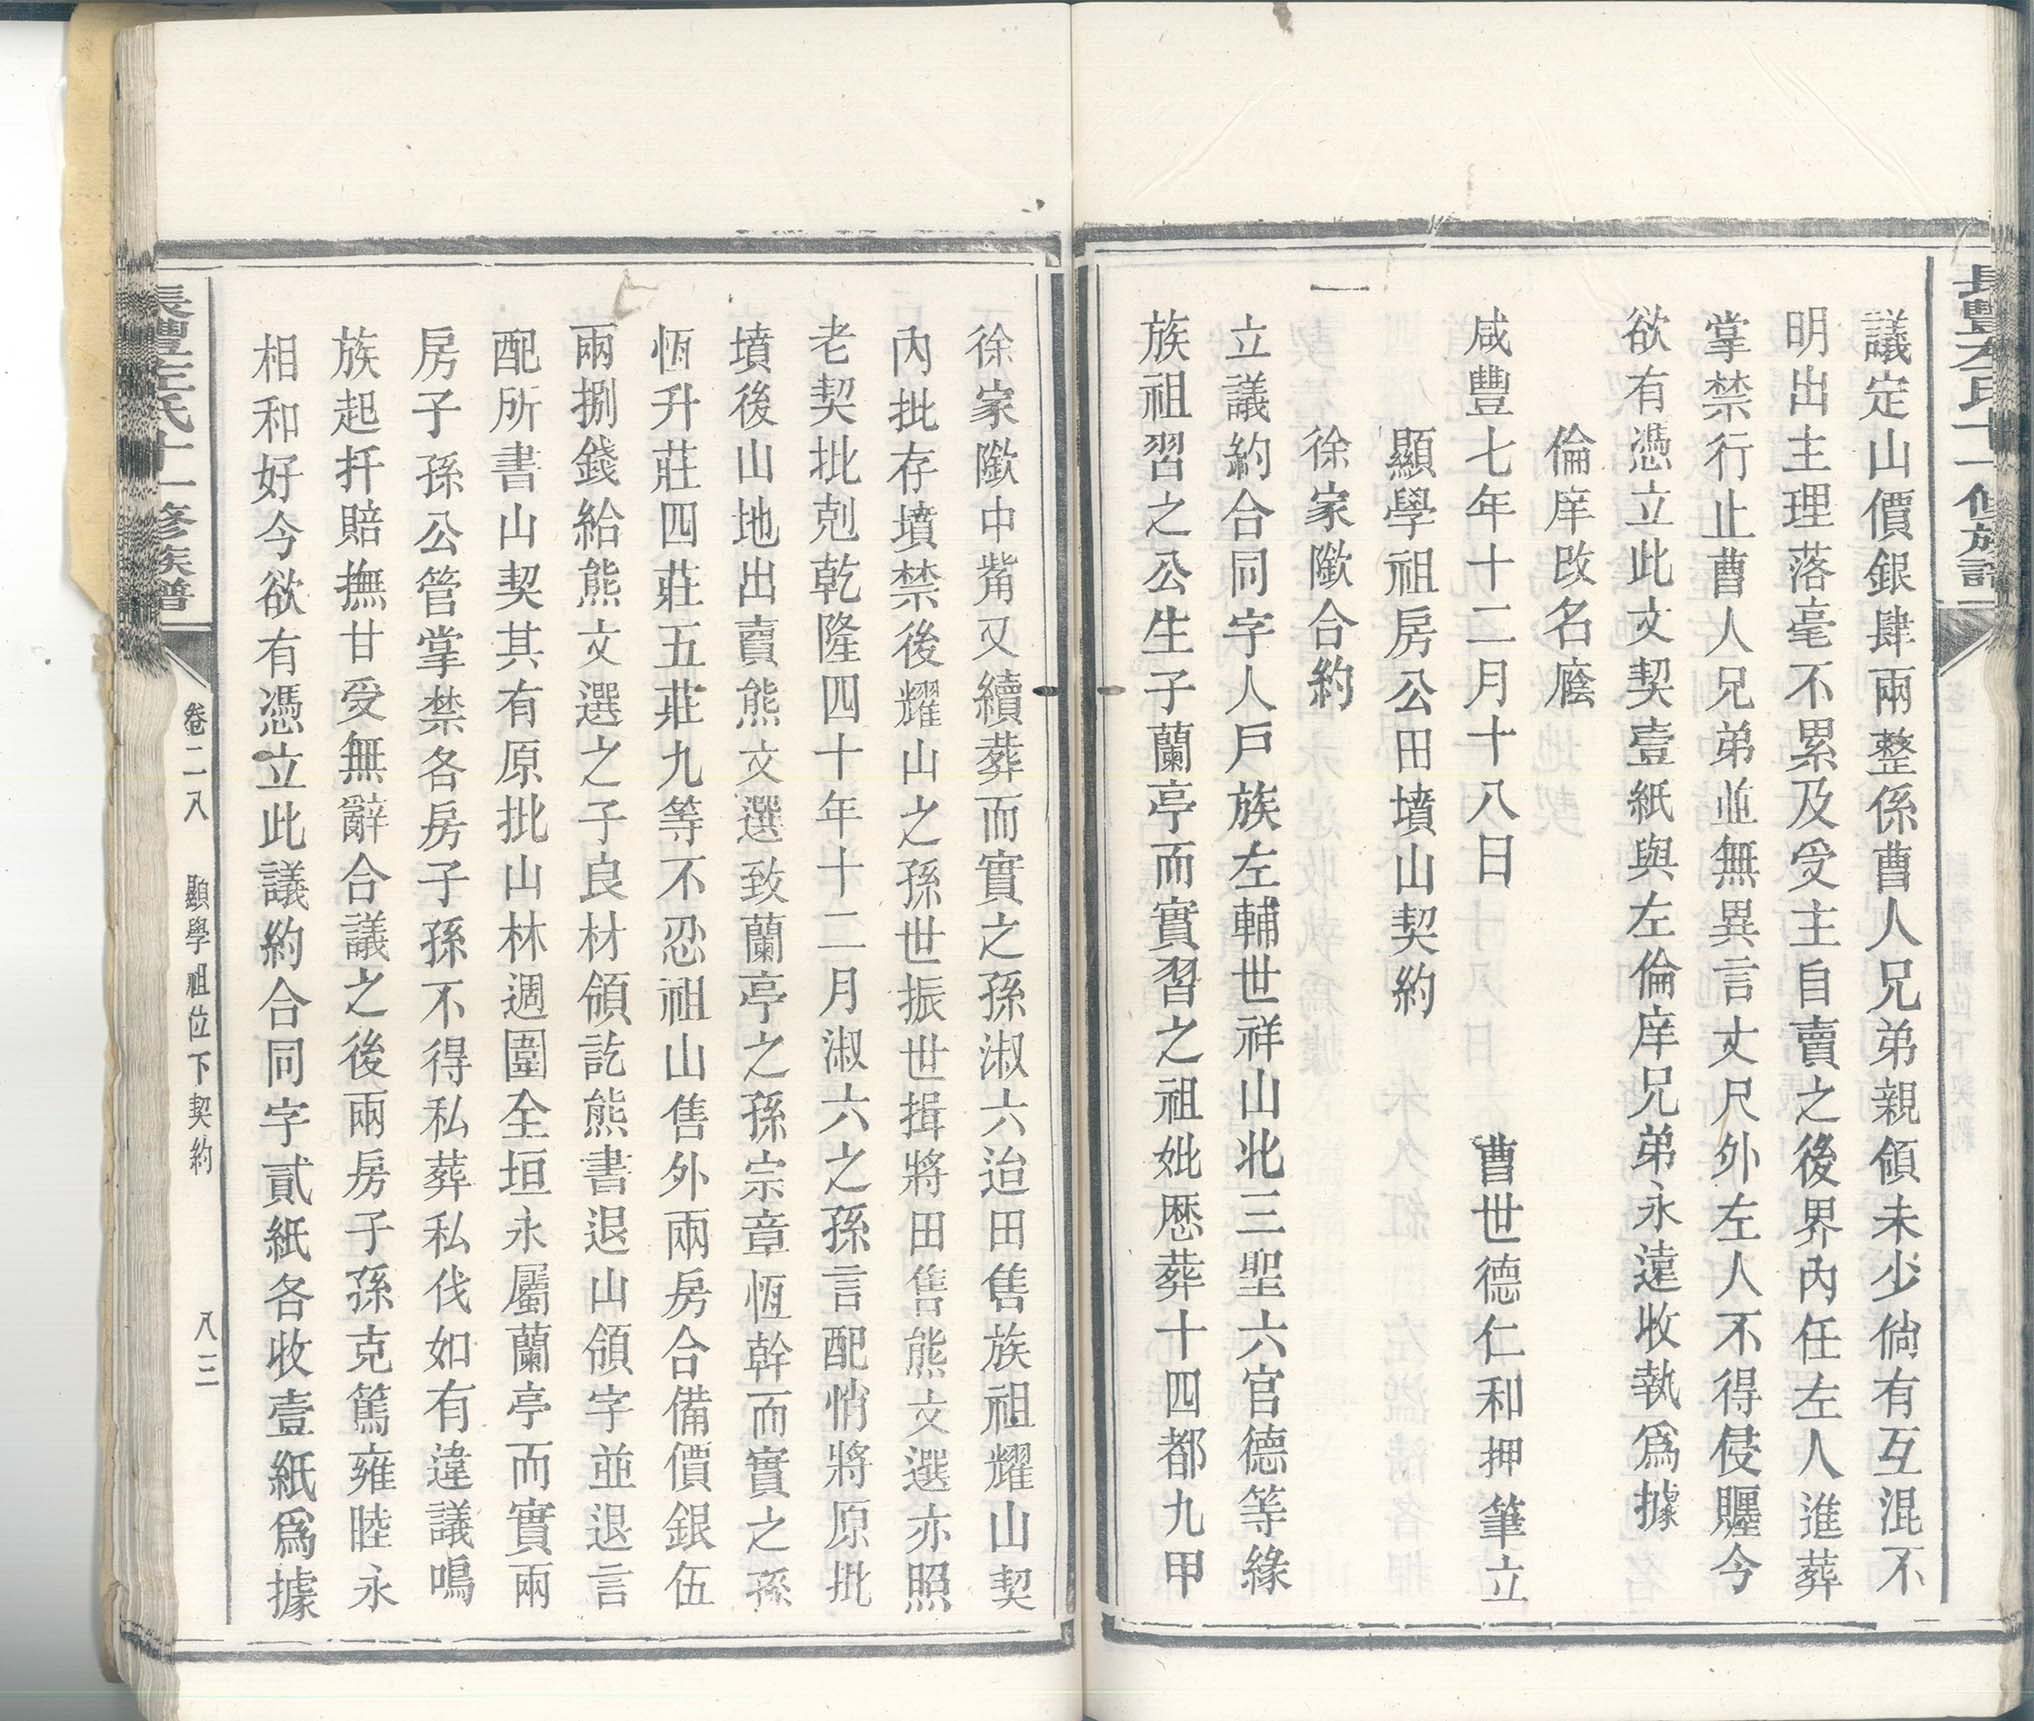 長豐左氏十一修族譜
議定山價銀肆兩整係曹人兄弟親領未少倘有互混不
明出主理落毫不累及受主自賣之後界內任左人進葬
掌禁行止曹人兄弟並無異言丈尺外左人不得侵驪今
欲有憑立此文契壹紙與左倫庠兄弟永遠收執爲據
倫庠改名廕
咸豐七年十二月十八日 曹世德仁和押 筆立
顯學祖房公田墳山契約
一徐家隞合約
立議約合同字人戶族左輔世祥山北三聖六官德等緣
族祖習之公生子蘭亭而實習之祖妣歷葬十四都九甲
徐家隞中觜又續葬而實之孫淑六迨田售族祖耀山契
內批存墳禁後耀山之孫世振世揖將田售熊文選亦照
老契批剋乾隆四十年十二月淑六之孫言配悄將原批
墳後山地出賣熊文選致蘭亭之孫宗章恆幹而實之孫
恆升莊四莊五莊九等不忍祖山售外兩房合備價銀伍
兩捌錢給熊文選之子良材領訖熊書退山領字並退言
配所書山契其有原批山林週圍全垣永屬蘭亭而實兩
房子孫公管掌禁各房子孫不得私葬私伐如有違議鳴
族起扦賠撫甘受無辭合議之後兩房子孫克篤雍睦永
相和好今欲有憑立此議約合同字貳紙各收壹紙爲據
長豐左氏十一修族譜
卷二八 顯學祖位下契約 八三